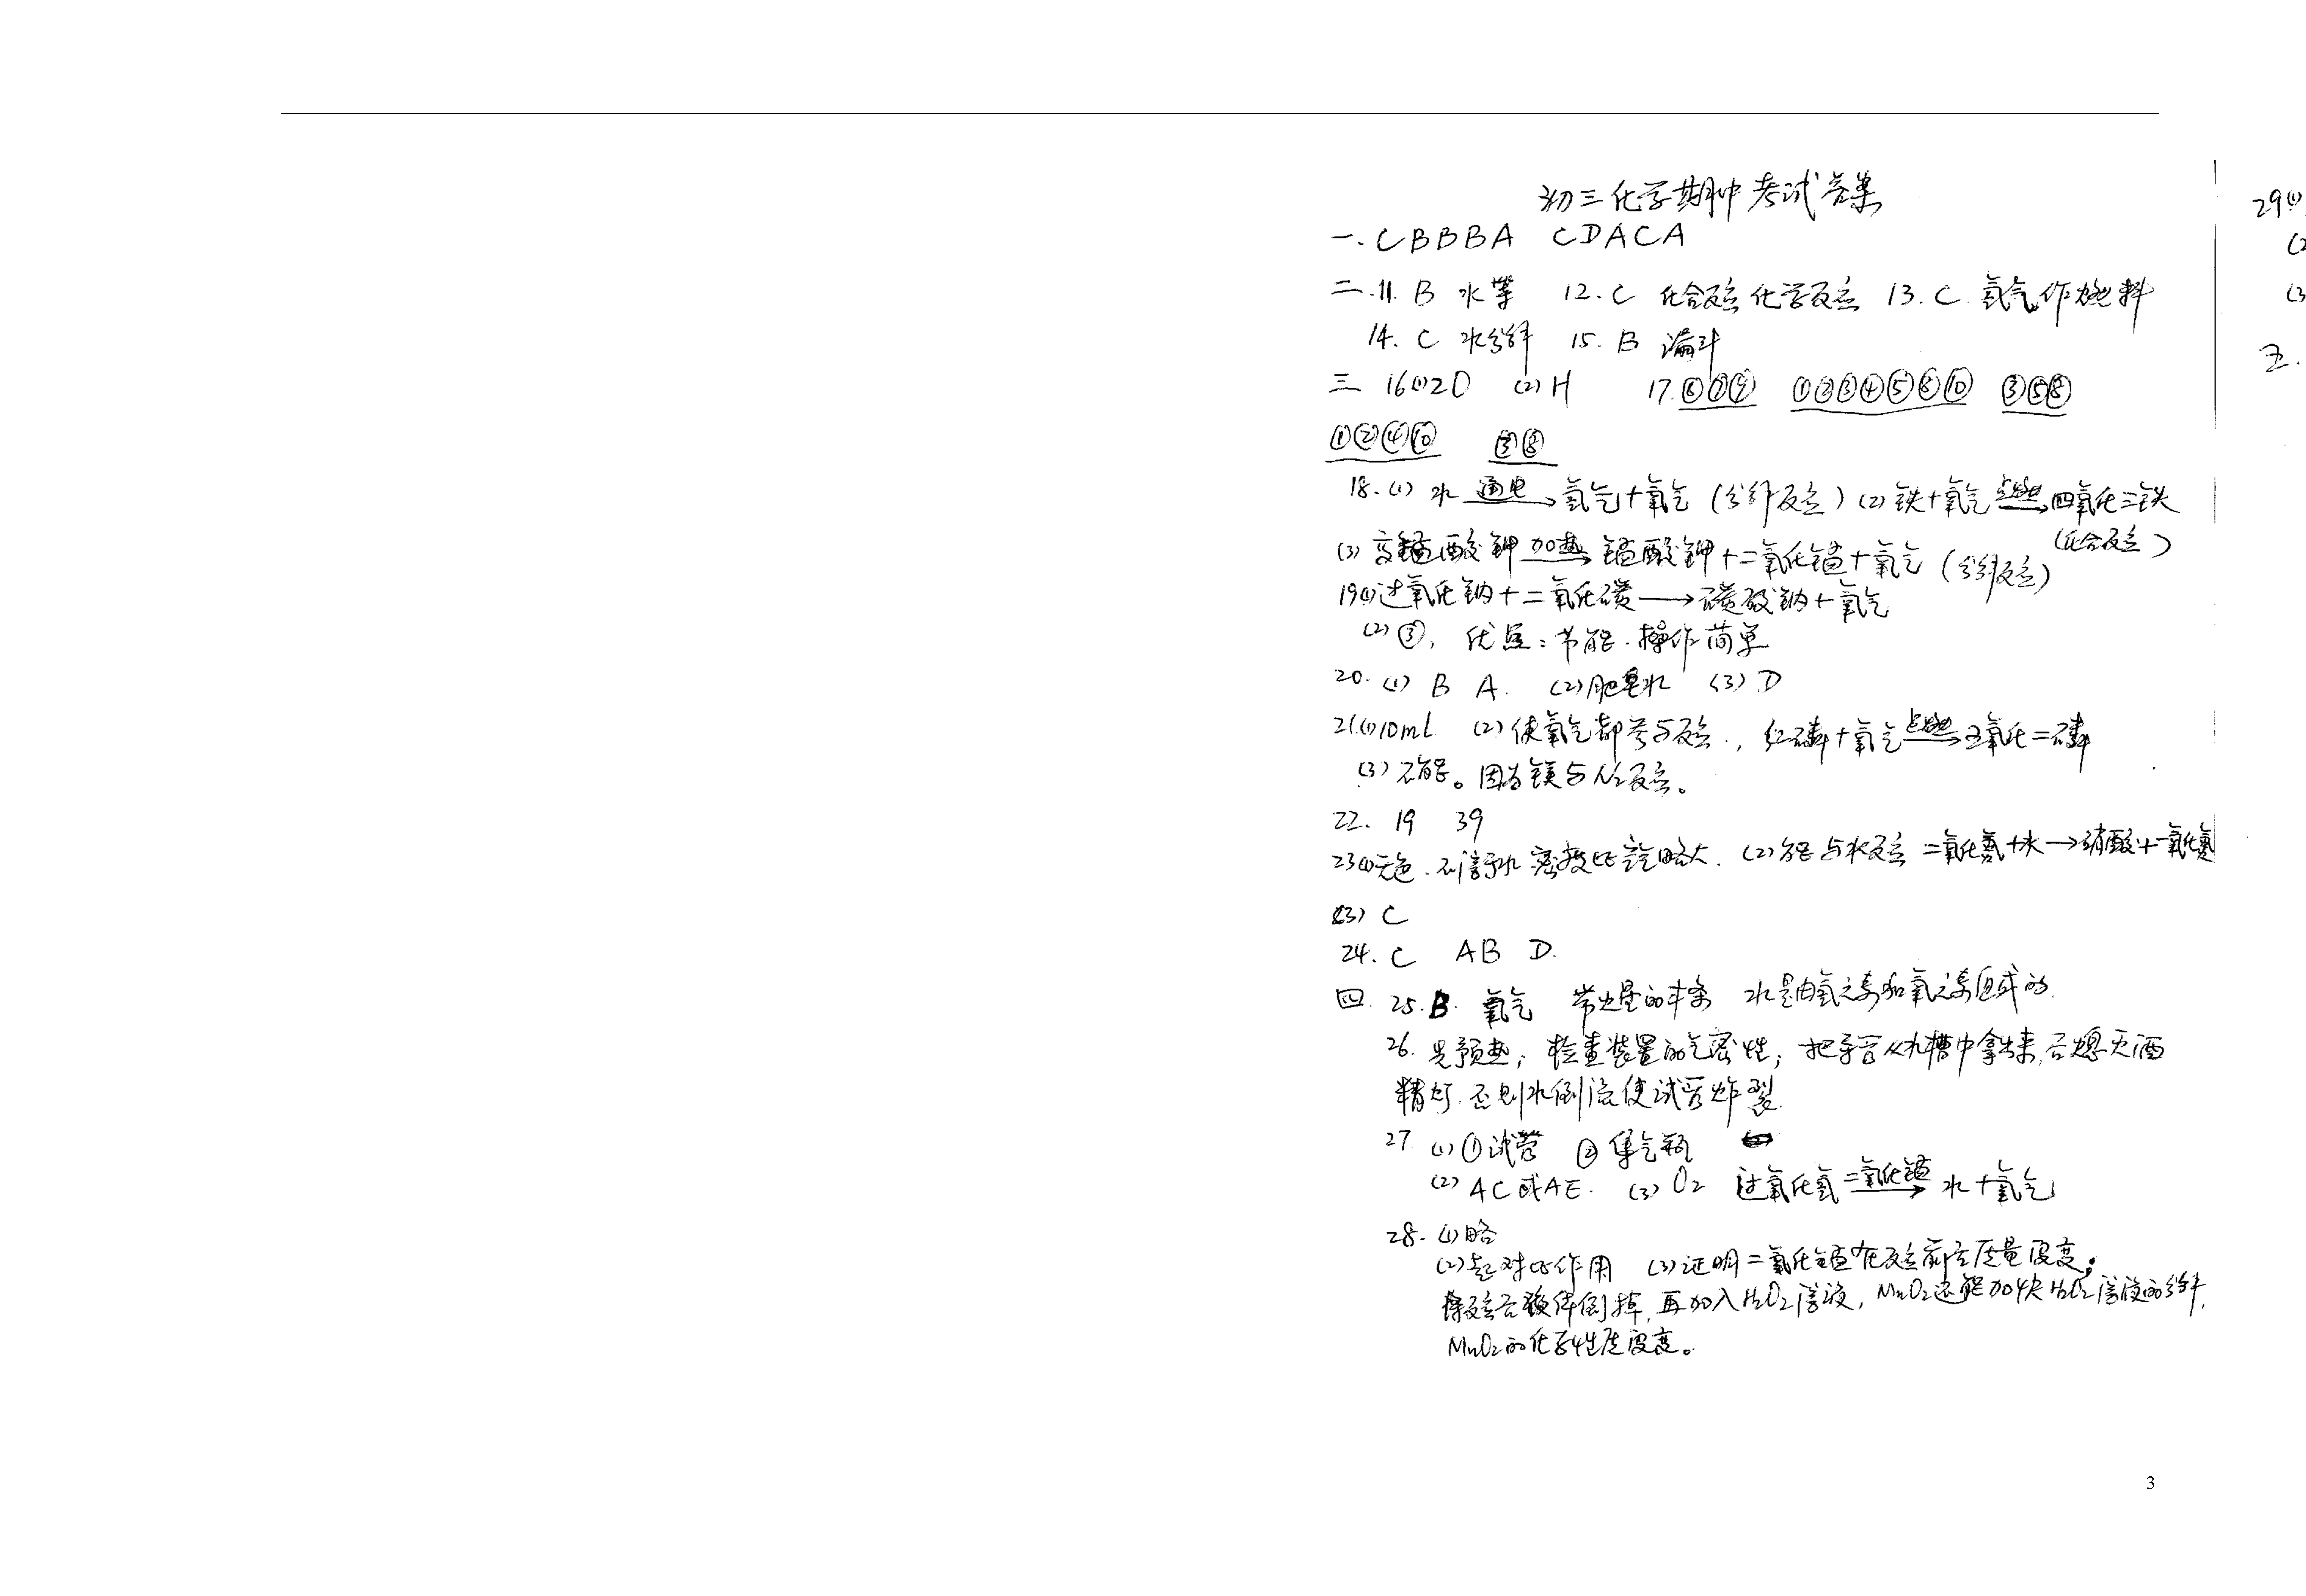 初三化学期中考试答案
一.CBBBA CDACA
二.11. B 水等 12. C 化合反应 化学反应 13. C. 氢气作燃料
14. C 水分解 15. B 漏斗
三 16(1)2O (2)H 17.⑥⑦⑨ ①②③④⑤⑧⑩ ③⑤⑧
①②④⑩ ⑤⑧
18.(1) 水 通电→ 氢气+氧气 (分解反应) (2) 铁+氧气 点燃→ 四氧化三铁
(化合反应)
(3) 高锰酸钾 加热→ 锰酸钾+二氧化锰+氧气 (分解反应)
19(1)过氧化钠+二氧化碳→碳酸钠+氧气
(2)③, 优点:节能.操作简单
20. (1) B A. (2)肥皂水 (3) D
21(1)10mL (2)使氧气都参与反应., 红磷+氧气 点燃→ 五氧化二磷
(3)不能。因为镁与N2反应。
22. 19 39
23(1)无色.不溶于水 密度比空气略大. (2)能与水反应 二氧化氮+水→硝酸+一氧化氮
(3) C
24. C AB D.
四 25.B. 氧气 带火星的木条 水是由氢元素和氧元素组成的.
26. 先预热; 检查装置的气密性; 把导管从水槽中拿出来,后熄灭酒
精灯.否则水倒流使试管炸裂.
27 (1)①试管 ②集气瓶
(2) AC或AE. (3) O2 过氧化氢 二氧化锰→ 水+氧气
28. (1)略
(2)起对比作用 (3)证明二氧化锰在反应前后质量没变;
将反应后液体倒掉,再加入H2O2溶液, MnO2还能加快H2O2溶液的分解,
MnO2的化学性质没变。
29(1)
(2
(3
五.
3